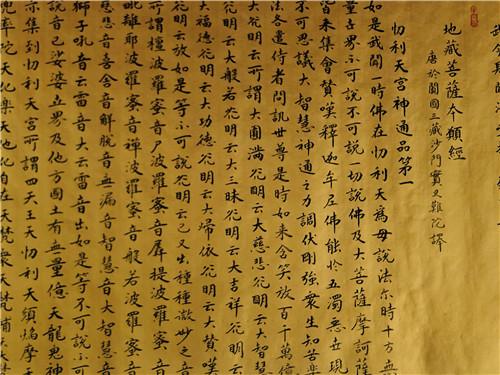 地藏菩薩夲願經
唐於闐國三藏沙門實叉難陀譯
忉利天宮神通品第一
如是我聞一時佛在忉利天為母說法尔時十方無
量世界不可說不可說一切說佛及大菩薩摩訶薩
皆來集會贊嘆釋迦牟尼佛能於五濁惡世現
不可思議大智慧神通之力調伏剛強衆生知苦樂
法各遣侍者問訊世尊是時如来含笑放百千萬億
大光明云所謂大圓满光明云大慈悲光明云大智慧
光明云大般若光明云大三昧光明云大吉祥光明云
大福德光明云大功德光明云大歸依光明云大贊嘆
光明云放如是等不可說光明云已又出種種微妙之音
所謂檀波羅蜜音尸波羅蜜音羼提波羅蜜音
毗離耶波羅蜜音禪波羅蜜音般若波羅蜜音
慈悲音喜舍音解脫音無漏音智慧音大智慧音
獅子吼音云雷音大云雷音出如是等不可說不可
說音已娑婆世界及他方國土有無量億天龍鬼神
亦集到忉利天宮所謂四天王天忉利天須焰摩天
兜率陀天化樂天他化自在天梵衆天梵輔天